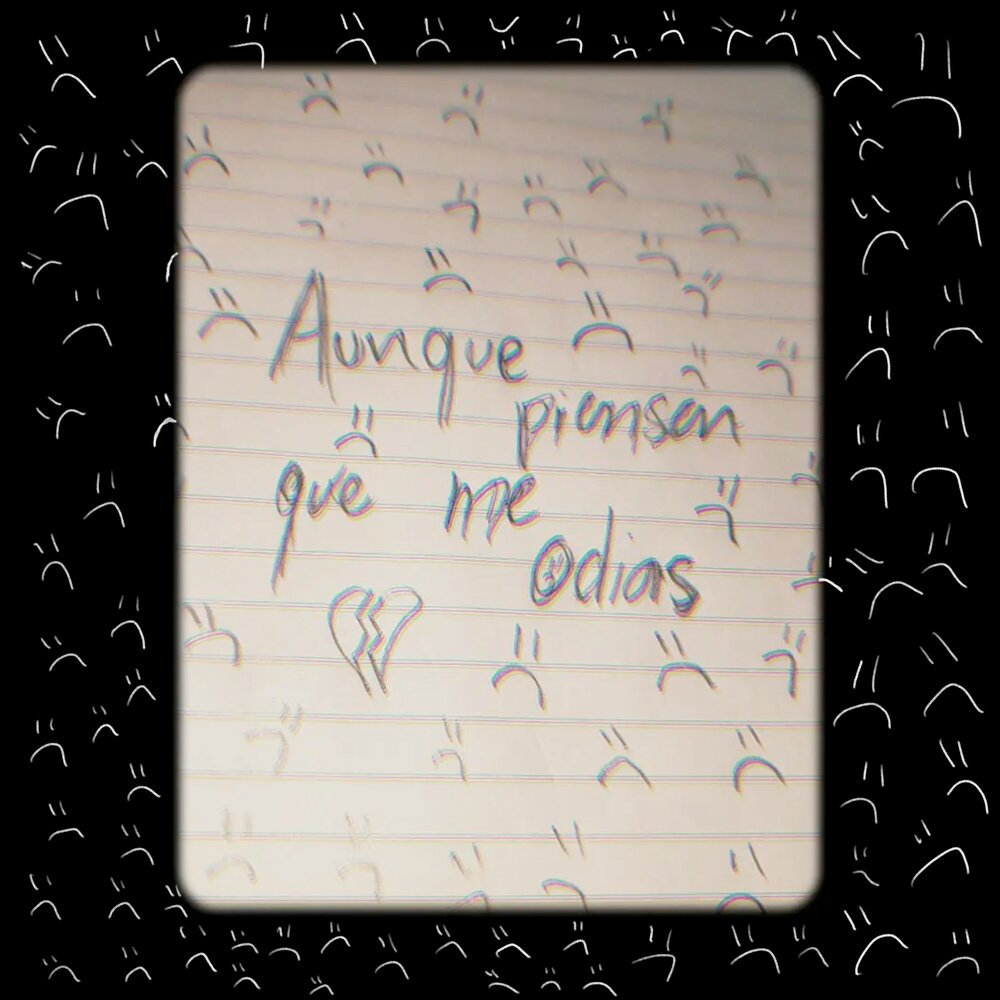 Aunque
piensen
que me
odias